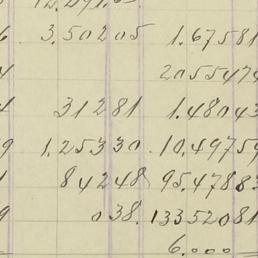 6 3.50205 1.67581
4 2055474
4 31281 1.48043
9 1.25330 10.49759
1 84248 95.47883
9 038. 13352081
6.000